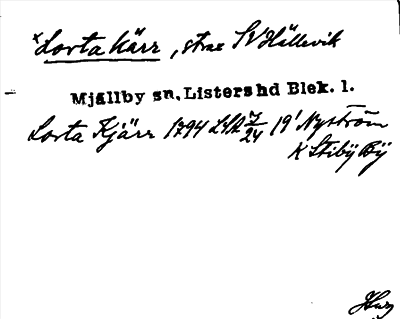 ×Lortakärr, strax SV Hällevik
Mjällby sn, Listers hd Blek. l.
Lorta Kjärr 1794 LSA 7/24 19' Nyström
K Stiby By